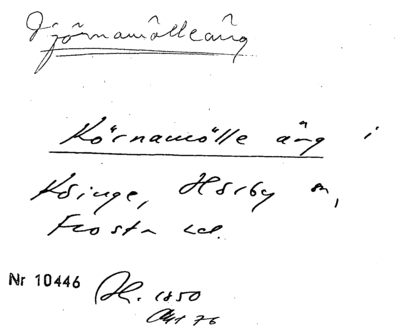 Görnamölleäng
Körnamölle äng i
Köinge, Hörby sn,
Frosta hd.
Nr 10446
H. 1850
Akt 76